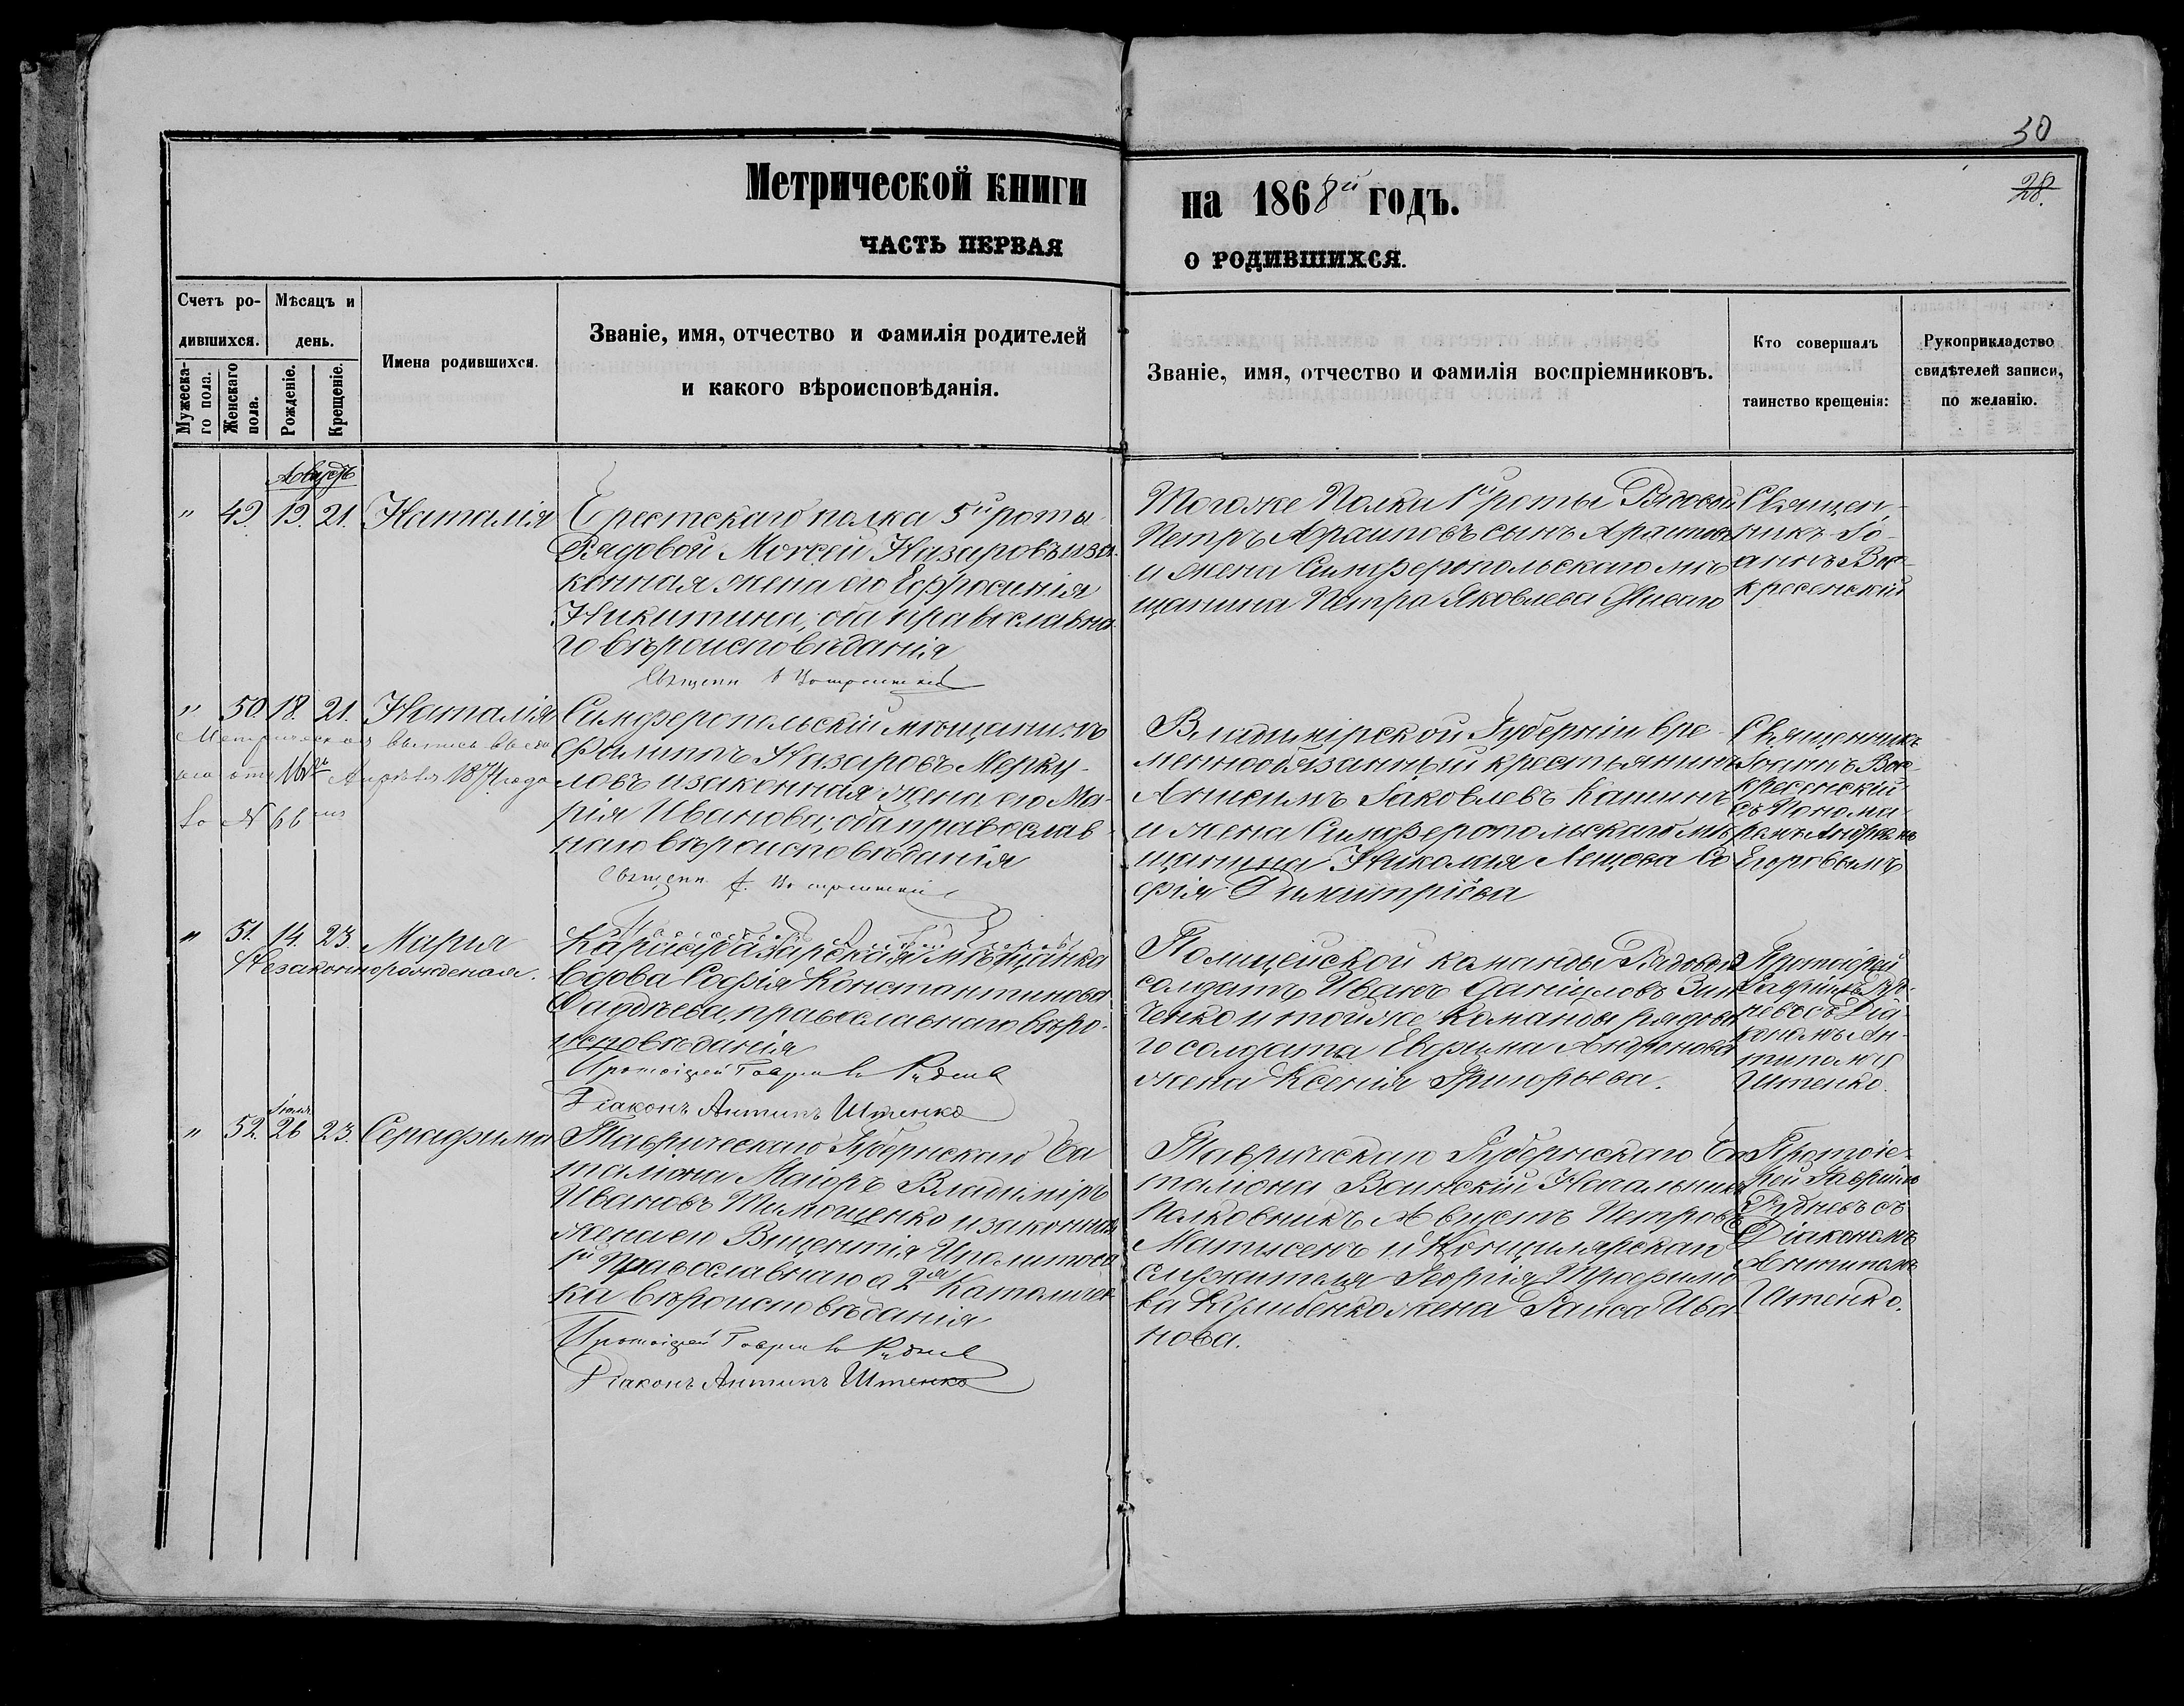 30
28.
Метрической книги на 1868й годъ.
ЧАСТЬ ПЕРВАЯ О РОДИВШИХСЯ.
Счетъ ро-
дившихся.
Мѣсяцъ и
день.
Мужеска-
го пола.
Женскаго
пола.
Рожденіе.
Крещеніе.
Имена родившихся.
Званіе, имя, отчество и фамилія родителей
и какого вѣроисповѣданія.
Званіе, имя, отчество и фамилія воспріемниковъ.
Кто совершалъ
таинство крещенія:
Рукоприкладство
свидѣтелей записи,
по желанію.
Августъ
" 49. 19. 21. Наталія
Брестскаго полка 5й роты
Рядовой Моѵсей Назаровъ и за-
конная жена его Ефросинія
Никитина, оба православна-
го вѣроисповѣданія
Тогоже Полка роты Рядовой
Петръ Архиповъ сынъ
и жена Симферопольскаго мѣ-
щанина Петра Яковлева
Священ-
никъ Іо-
аннъ Вос-
кресенскій
" 50. 18. 21. Наталія
Метрическая выпись
отъ 16го Апрѣля 1874 года
за № 66
Симферопольскій мѣщанинъ
Филиппъ Назаровъ Мерку-
ловъ и законная жена его Ма-
рія Иванова, оба православ-
наго вѣроисповѣданія
Владимірской Губерніи вре-
меннообязанный крестьянинъ
Анисимъ Іаковлевъ Кашинъ
и жена Симферопольскаго мѣ-
щанина Николая Лещева Со-
фія Димитріева
Священникъ
Іоаннъ Вос-
кресенскій
съ Понома-
ремъ Андреемъ
Егоровымъ
" 51. 14. 23. Марія
Незаконнорожденная.
Карасубазарская мѣщанка
вдова Софія Константинова
Фаддѣева, православнаго вѣро-
исповѣданія
Протоіерей Гавріилъ Руднев
Діаконъ Антипъ Штенко
Полицейской команды Рядовой
солдатъ Иванъ Даниловъ Зин-
ченко и тойже команды рядова-
го солдата Евфима Андронова
жена Ксенія Григорьева.
Протоіерей
Гавріилъ Руд-
невъ съ Діа-
кономъ Ан-
типомъ
Штенко.
Іюля
" 52. 26 23. Серафима
Таврическаго Губернскаго Ба-
таліона Маіоръ Владиміръ
Ивановъ Тимощенко и законная
жена его Викентія Иполитова
1й Православнаго а 2я Католичес-
ка вѣроисповѣданія
Протоіерей Гавріилъ Руднев
Діаконъ Антипъ Штенко
Таврическаго Губернскаго Ба-
таліона Воинскій Начальникъ
Полковникъ Августъ Петровъ
Матисенъ и Канцелярскаго
служителя Георгія Трофимо-
ва жена Раиса Ива-
нова.
Протоіе-
рей Гавріилъ
Рудневъ съ
Діакономъ
Антипомъ
Штенко.